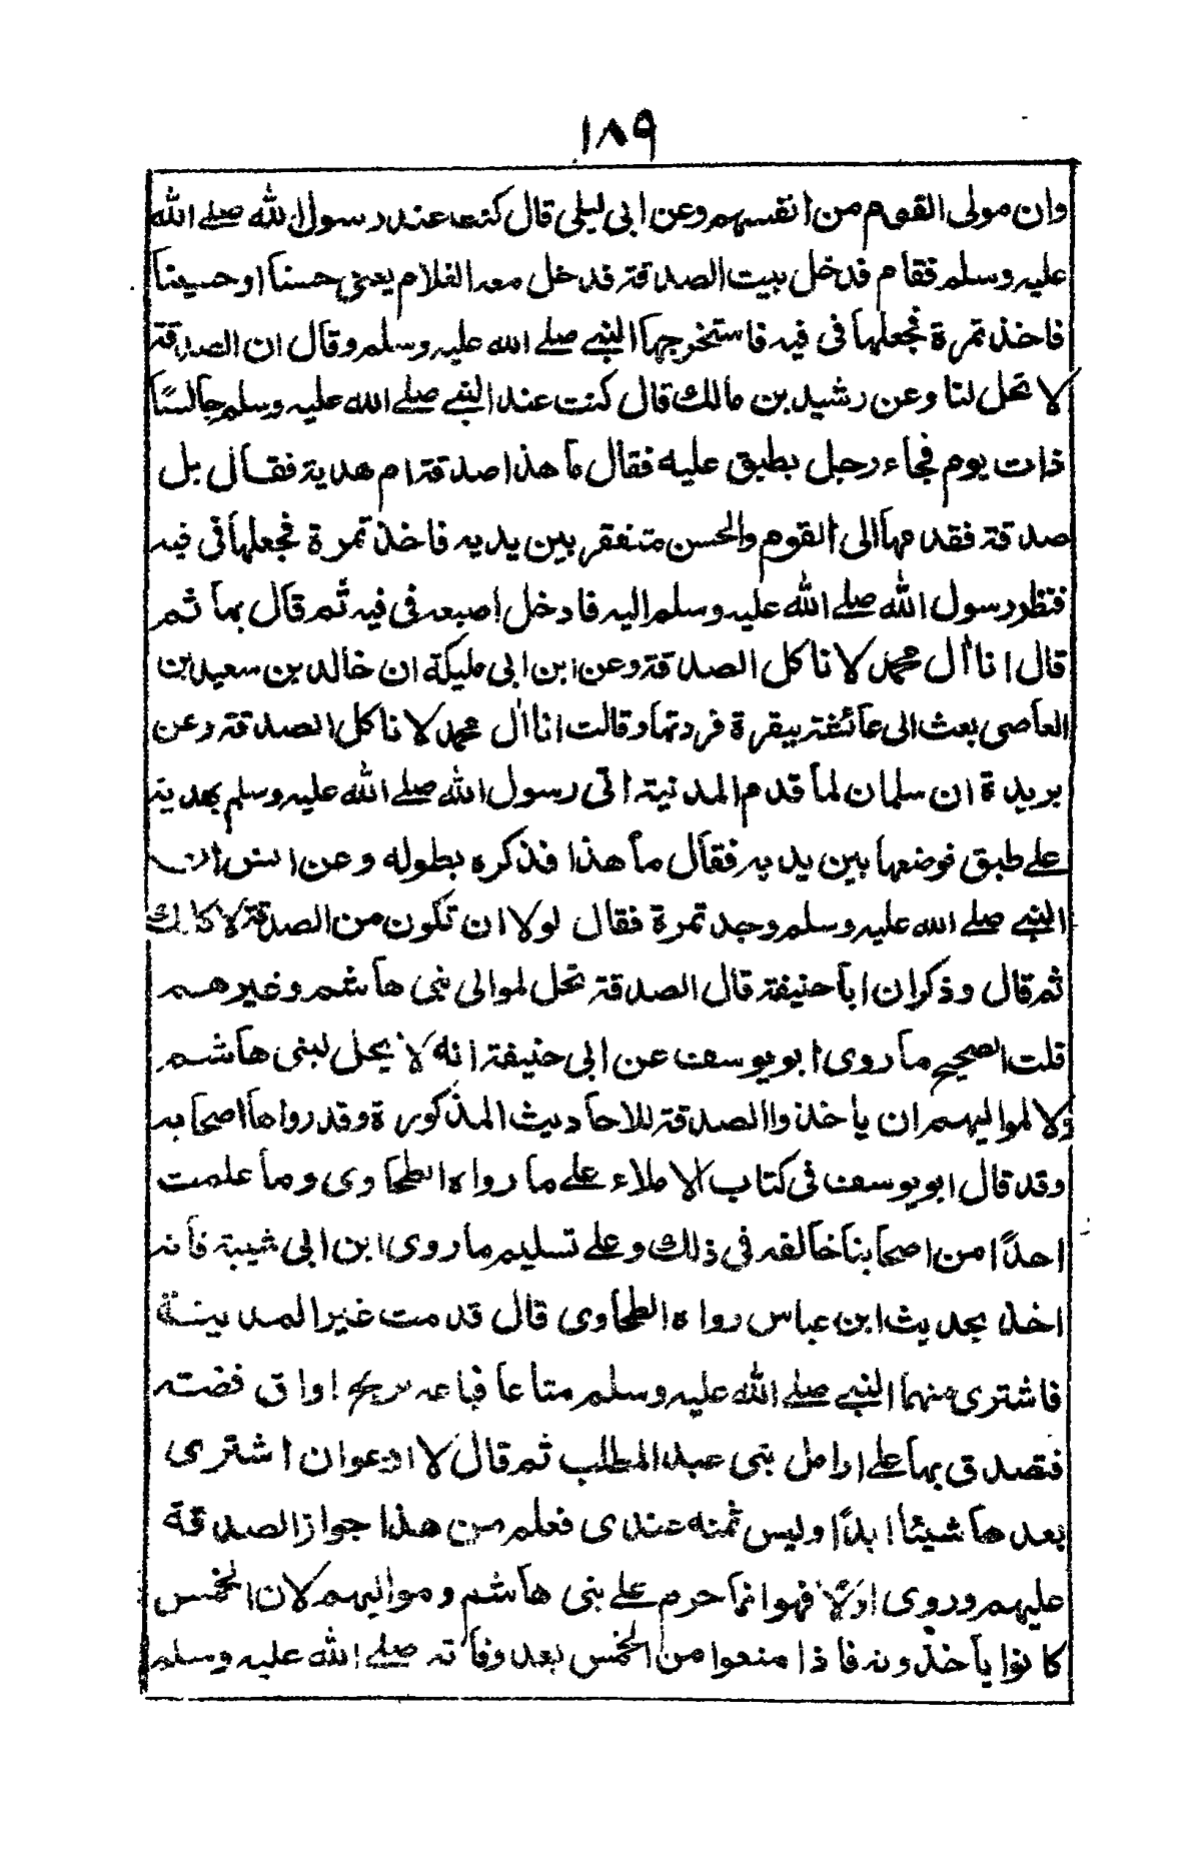 ١٨٩
وان مولى القوم من انفسهم وعن ابى ليلى قال كنت عند رسول الله صلے الله
عليه وسلم فقام فدخل بيت الصدقة فدخل معه الغلام يعنى حسنا او حسينا
فاخذ تمرة فجعلها فى فيه فاستخرجها النبے صلے الله عليه وسلم وقال ان الصدقة
لا تحل لنا وعن رشيد بن مالك قال كنت عند النبے صلے الله عليه وسلم جالسًا
ذات يوم فجاء رجل بطبق عليه فقال ما هذا صدقة ام هدية فقال بل
صدقة فقدمها الى القوم والحسن متنفقر بين يديه فاخذ تمرة فجعلها فى فيه
فنظر رسول الله صلے الله عليه وسلم اليه فادخل اصبعه فى فيه ثم قال بها ثم
قال انا اٰل محمد لا ناكل الصدقة وعن ابن ابى مليكة ان خالد بن سعيد بن
العاصى بعث الى عائشة ببقرة فردتها وقالت انا اٰل محمد لا ناكل الصدقة وعن
بريدة ان سلمان لما قدم المدنية اتى رسول الله صلے الله عليه وسلم بهدية
علے طبق فوضعها بين يديه فقال ما هذا فذكره بطوله وعن انس ان
النبے صلے الله عليه وسلم وجد تمرة فقال لولا ان تكون من الصدقة لاكلتك
ثم قال وذكر ان ابا حنيفة قال الصدقة تحل لموالى بنى هاشم وغيرهم
قلت الصحيح ما روى ابو يوسف عن ابى حنيفة انه لا يحل لبنى هاشم
ولا لمواليهم ان ياخذوا الصدقة للاحاديث المذكورة وقد رواها اصحابه
وقد قال ابو يوسف فى كتاب الاملاء علے ما رواه الطحاوى وما علمت
احدًا من اصحابنا خالفه فى ذلك وعلے تسليم ما روى ابن ابى شيبة فانه
اخذ بحديث ابن عباس رواه الطحاوى قال قدمت غير المدينة
فاشترى منها النبے صلے الله عليه وسلم متاعا فباعه بربح اواق فضة
فتصدق بها علے ارامل بنى عبد المطلب ثم قال لا ادعوان اشترى
بعدها شيئا ابدًا وليس ثمنه عندى فعلم من هذا جواز الصدقة
عليهم وروى اولًا فهو انما حرم علے بنى هاشم ومواليهم لان الخمس
كانوا ياخذونه فاذا منعوا من الخمس بعد وفاته صلے الله عليه وسلم